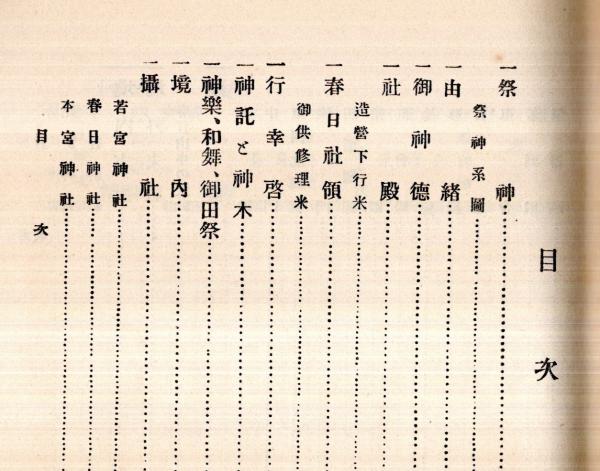 目次
一祭神
祭神系圖
一由緒
一御神德
一社殿
造營下行米
一春日社領
御供修理米
一行幸啓
一神託と神木
一神樂、和舞、御田祭
一境內
一攝社
若宮神社
春日神社
本宮神社
目次